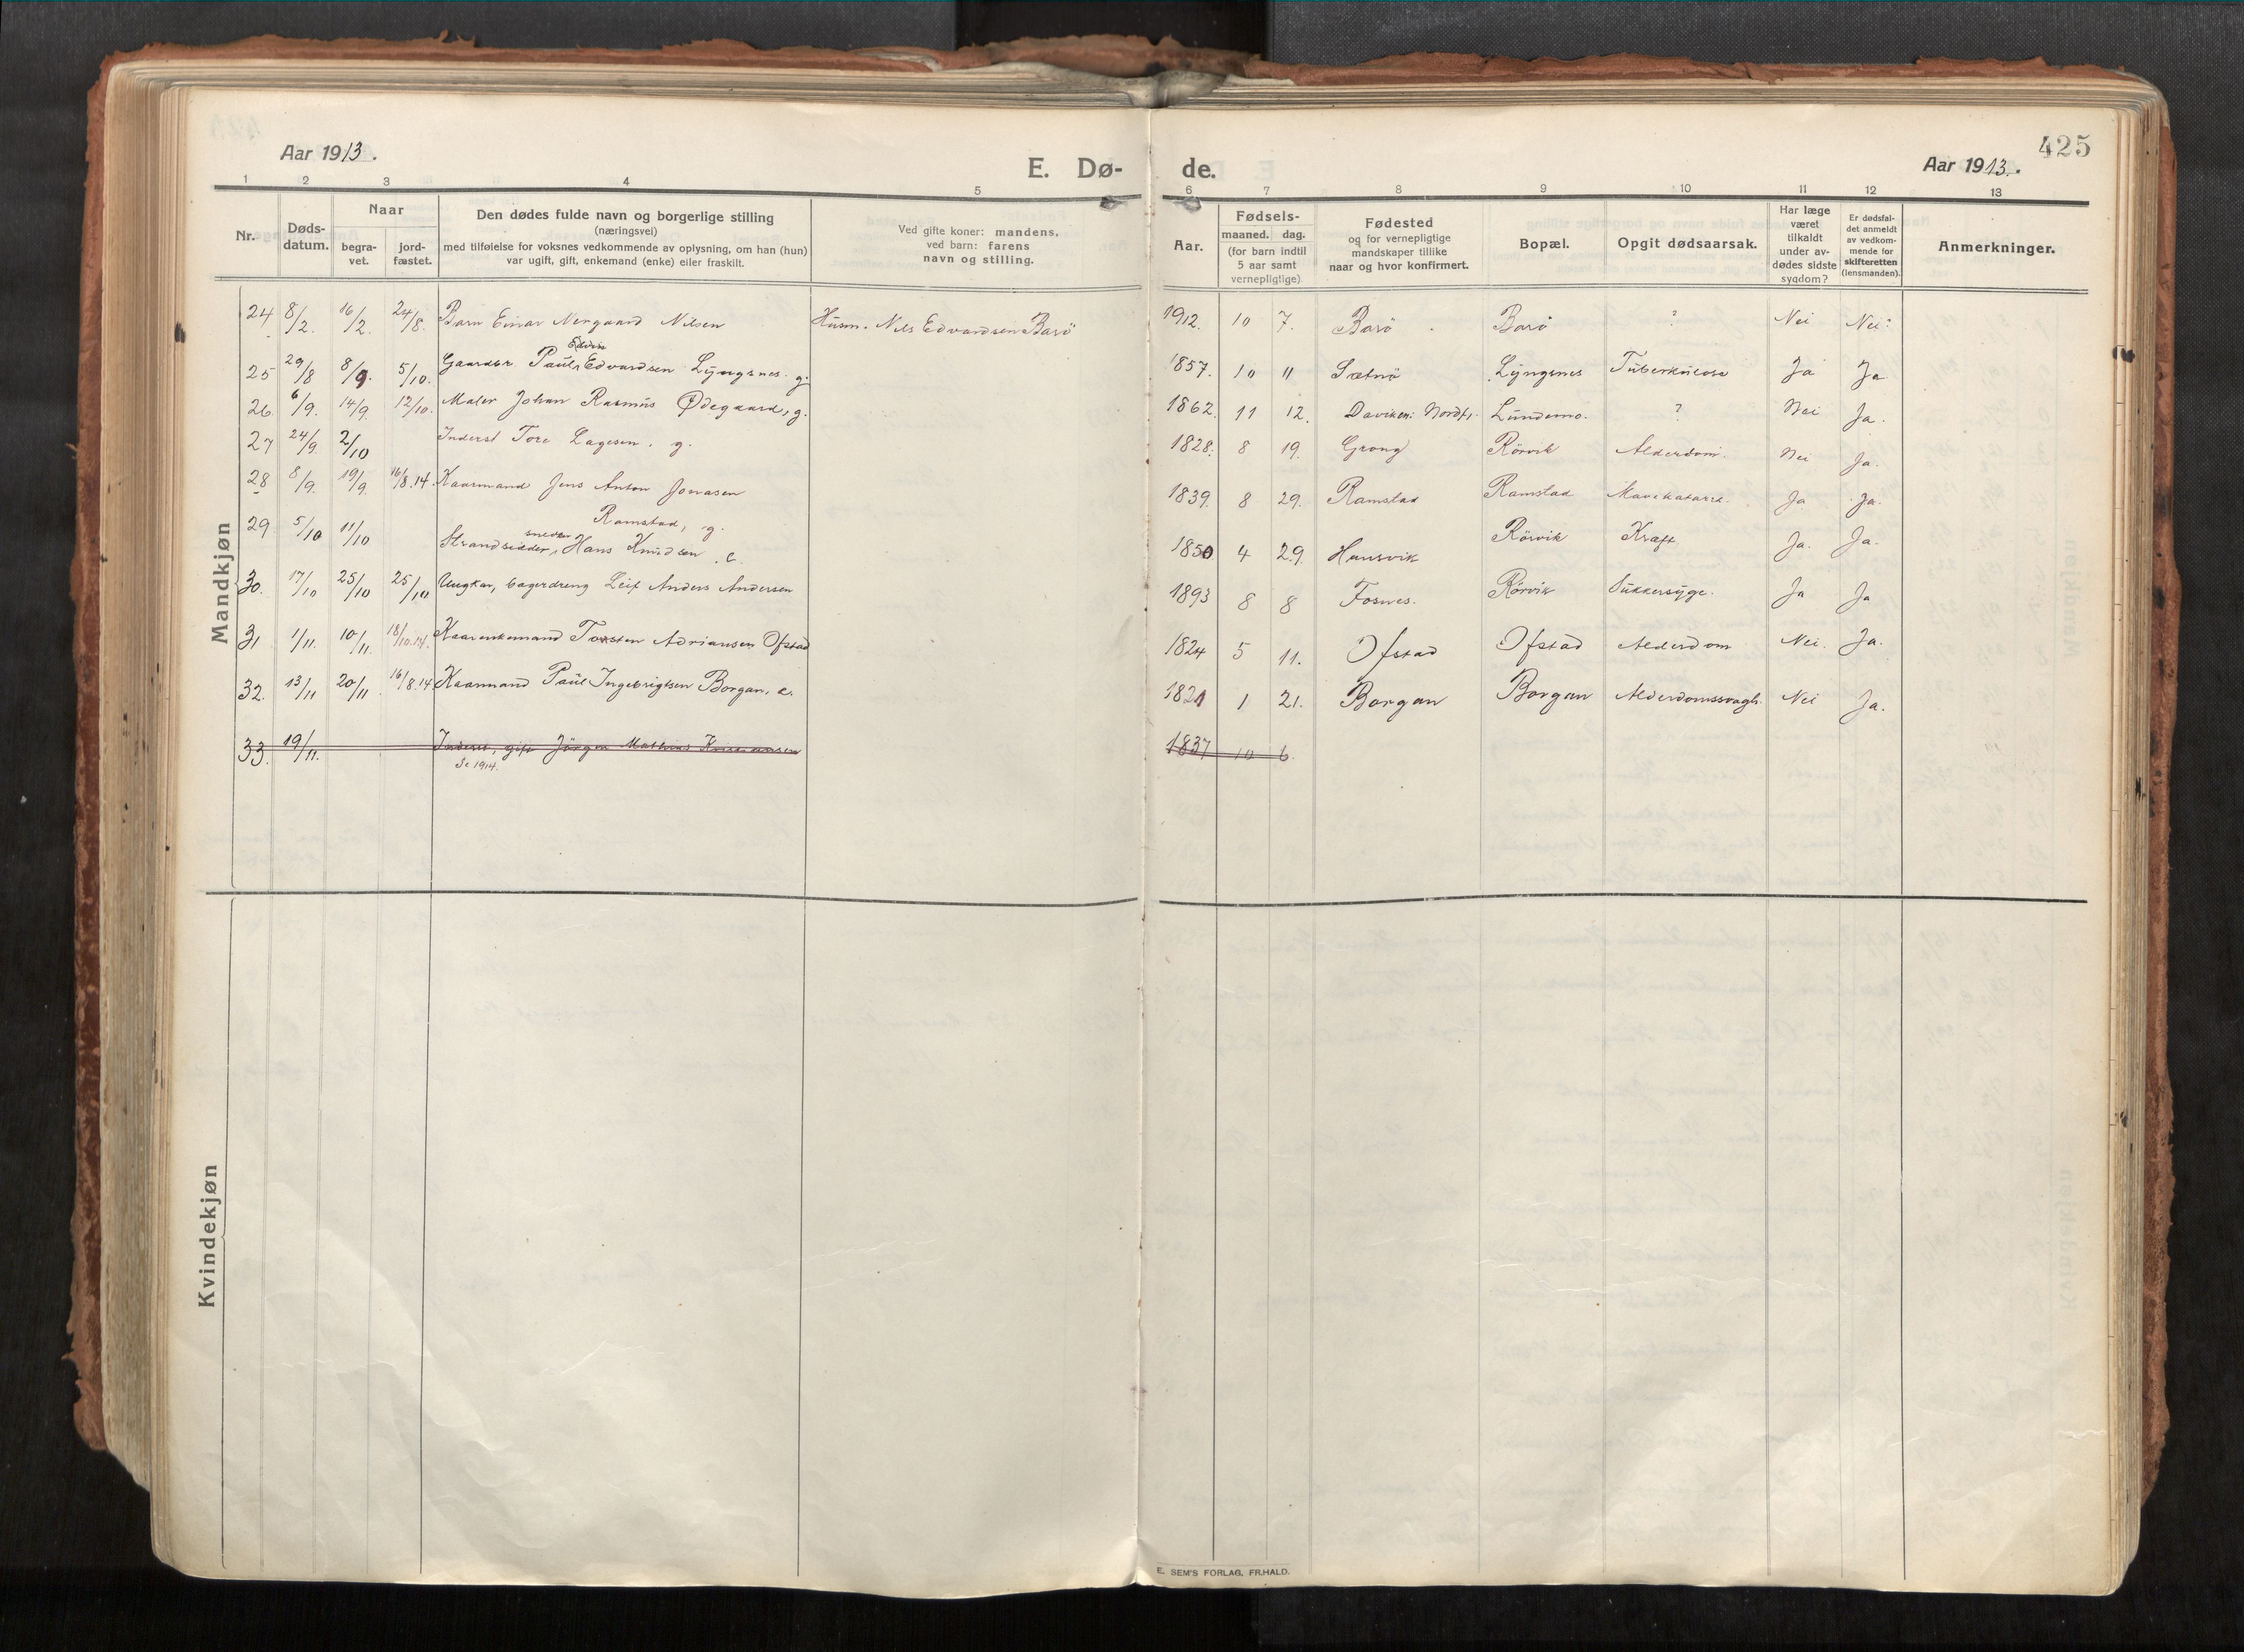 425
Aar 1913.
E. Dø-
de.
Aar 1913.
1 2 3 4 5 6 7 8 9 10 11 12 13
Nr.
Døds-
datum.
Naar
begra-
vet.
jord-
fæstet.
Den dødes fulde navn og borgerlige stilling
(næringsvei)
med tilføielse for voksnes vedkommende av oplysning, om han (hun)
var ugift, gift, enkemand (enke) eller fraskilt.
Ved gifte koner: mandens,
ved barn: farens
navn og stilling.
Aar.
Fødsels-
maaned. dag.
(for barn indtil
5 aar samt
vernepligtige)
Fødested
og for vernepligtige
mandskaper tillike
naar og hvor konfirmert.
Bopæl.
Opgit dødsaarsak.
Har læge
været
tilkaldt
under av-
dødes sidste
sygdom?
Er dødsfal-
det anmeldt
av vedkom-
mende for
skifteretten
(lensmanden).
Anmerkninger.
Mandkjøn
24 8/2. 16/2. 24/8. Barn Einar Nergaard Nilsen Husm. Nils Edvardsen Barö 1912. 10 7. Barö Barö ? Nei Nei
Edvin
25 29/8 8/9. 5/10. Gaardbr Paul Edvardsen Lyngsnes. g. 1857. 10 11 Sætnö Lyngsnes Tuberkulose Ja Ja
26 6/9. 14/9. 12/10. Maler Johan Rasmus Ødegaard, g. 1862. 11 12. Daviken: Nordfj. Lundemo. ? Nei Ja.
27 24/9. 2/10 Inderst Tore Lagesen. g. 1828. 8 19. Grong Rörvik Alderdom. Nei Ja.
28 8/9. 19/9. 16/8.14. Kaarmand Jens Anton Jonasen 1839. 8 29. Ramstad Ramstad Mavekatarrh. Ja Ja.
Ramstad, g.
29 5/10 11/10 Strandsidder, Hans Knudsen . e. 1850 4 29. Hansvik Rörvik Kræft Ja. Ja.
30. 17/10 25/10 25/10 Ungkar, bagerdreng Leif Anders Andersen 1893 8 8 Fosnes. Rörvik Sukkersyge. Ja Ja
31 1/11. 10/11. 18/10.14. Kaarenkemand Torsten Adriansen Ofstad 1824 5 11. Ofstad Ofstad Alderdom Nei. Ja.
32. 13/11 20/11 16/8.14 Kaarmand Paul Ingebrigtsen Borgan, e. 1821 1 21. Borgan Borgan Alderdomssvagh. Nei Ja.
33. 19/11. Inderst, gift Jörgen Mathias Kristiansen 1837 10 6.
Se 1914.
Kvindekjøn
E. SEM'S FORLAG, FR.HALD.